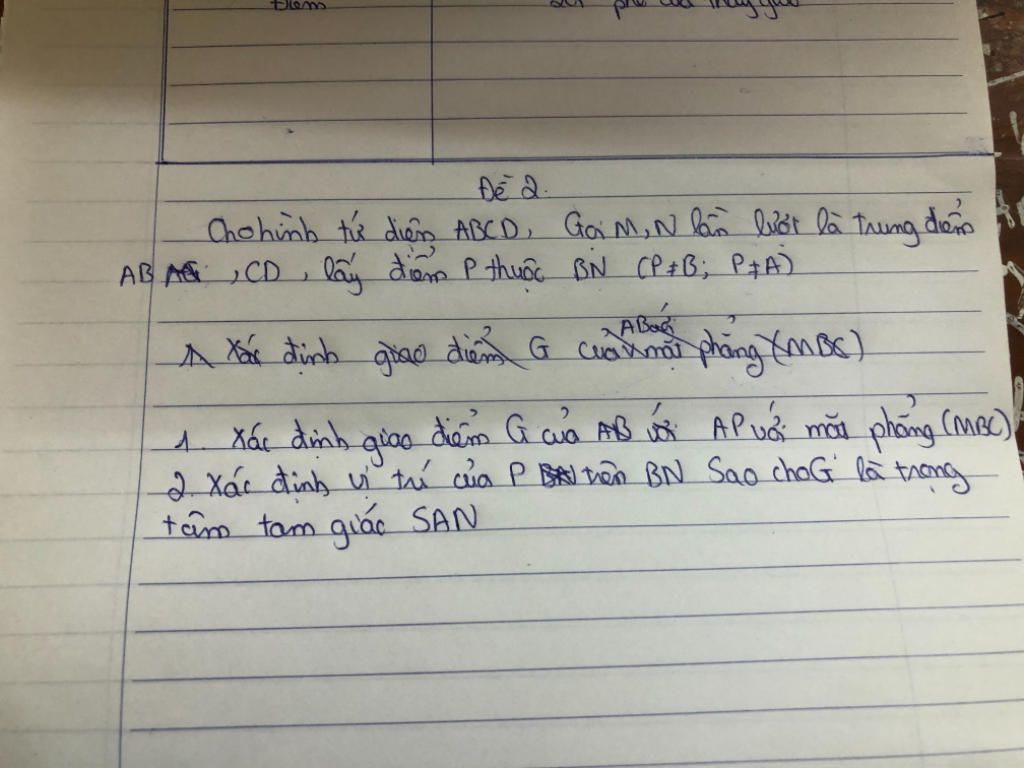 Điểm
phê của thầy giáo
Đề 2.
Cho hình tứ diện ABCD, Gọi M, N lần lượt là trung điểm
AB , CD , lấy điểm P thuộc BN (P≠B; P≠A)
1 Xác định giao điểm G của AB với mặt phẳng (MBC)
1. Xác định giao điểm G của AB với AP với mặt phẳng (MBC)
2. Xác định vị trí của P BN trên BN Sao cho G là trọng
tâm tam giác SAN